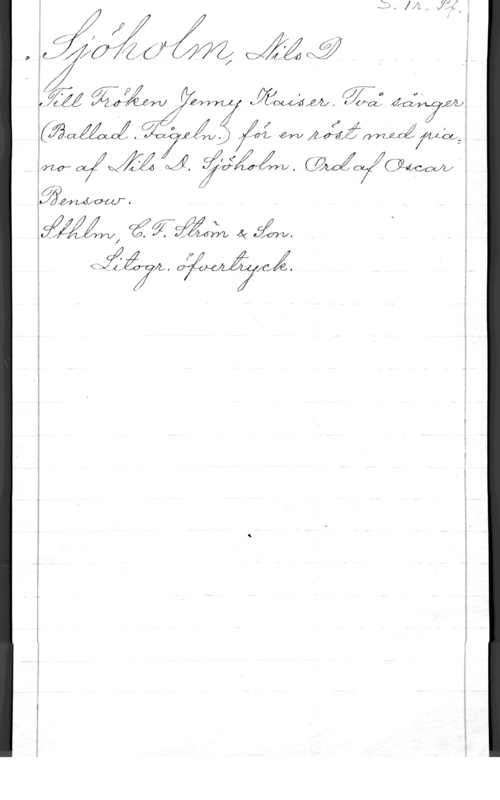 S. 1 r. Pf.
Sjöholm, Nils D
Till Fröken Jenny Kaiser. Två sånger
(Ballad. Fågeln.) för en röst med pia=
no af Nils D. Sjöholm. Ord af Oscar
Bensow.
Sthlm, C. F. Ström & Son.
Litogr. öfvertryck.